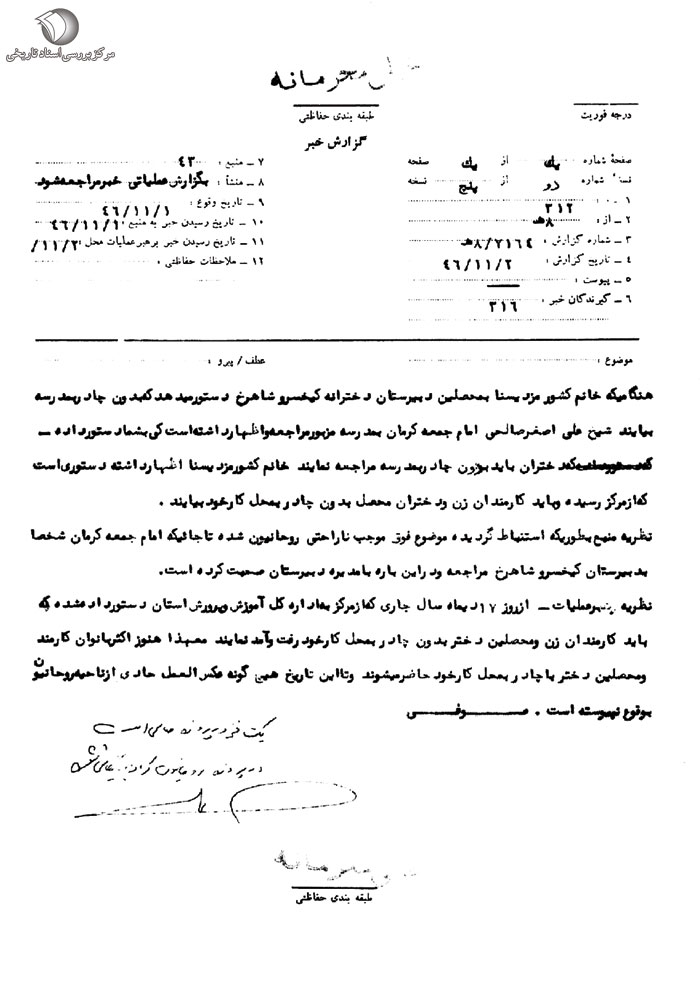 مرکز بررسی اسناد تاریخی
محرمانه
طبقه بندی حفاظتی
درجه فوریت
گزارش خبر
صفحهٔ شماره یک از یک صفحه
نسخهٔ شماره دو از پنج نسخه
۱ ــ ۳۱۲
۲ ــ از : ۸هـ
۳ ــ شماره گزارش : ۸/۷۱۶۴هـ
۴ ــ تاریخ گزارش : ۴۶/۱۱/۲
۵ ــ پیوست :
۶ ــ گیرندگان خبر : ۳۱۶
۷ ــ منبع : ۴۳
۸ ــ منشأ : بگزارش عملیاتی خبر مراجعه شود
۹ ــ تاریخ وقوع : ۴۶/۱۱/۱
۱۰ ــ تاریخ رسیدن خبر به منبع : ۴۶/۱۱/۱
۱۱ ــ تاریخ رسیدن خبر برهبر عملیات محل : /۱۱/۲
۱۲ ــ ملاحظات حفاظتی :
موضوع :
عطف / پیرو :
هنگامیکه خانم کشور مزدیسنا بمحصلین دبیرستان دخترانه کیخسرو شاهرخ دستور میدهد که بدون چادر بمدرسه
بیایند شیخ علی اصغر صالحی امام جمعه کرمان بمدرسه مزبور مراجعه و اظهار داشته است کی بشما دستور داده ــ
که دختران باید بدون چادر بمدرسه مراجعه نمایند خانم کشور مزدیسنا اظهار داشته دستوری است
که از مرکز رسیده و باید کارمندان زن و دختران محصل بدون چادر بمحل کار خود بیایند .
نظریه منبع بطوریکه استنباط گردیده موضوع فوق موجب ناراحتی روحانیون شده تا جائیکه امام جمعه کرمان شخصا
بدبیرستان کیخسرو شاهرخ مراجعه و در این باره با مدیره دبیرستان صحبت کرده است.
نظریه رهبر عملیات ــ از روز ۱۷ دیماه سال جاری که از مرکز به اداره کل آموزش و پرورش استان دستور داده شده که
باید کارمندان زن و محصلین دختر بدون چادر بمحل کار خود رفت و آمد نمایند معهذا هنوز اکثر بانوان کارمند
و محصلین دختر با چادر بمحل کار خود حاضر میشوند و تا این تاریخ هیچ گونه عکس العمل حادی از ناحیه روحانیون
بوقوع نپیوسته است .
محرمانه
طبقه بندی حفاظتی